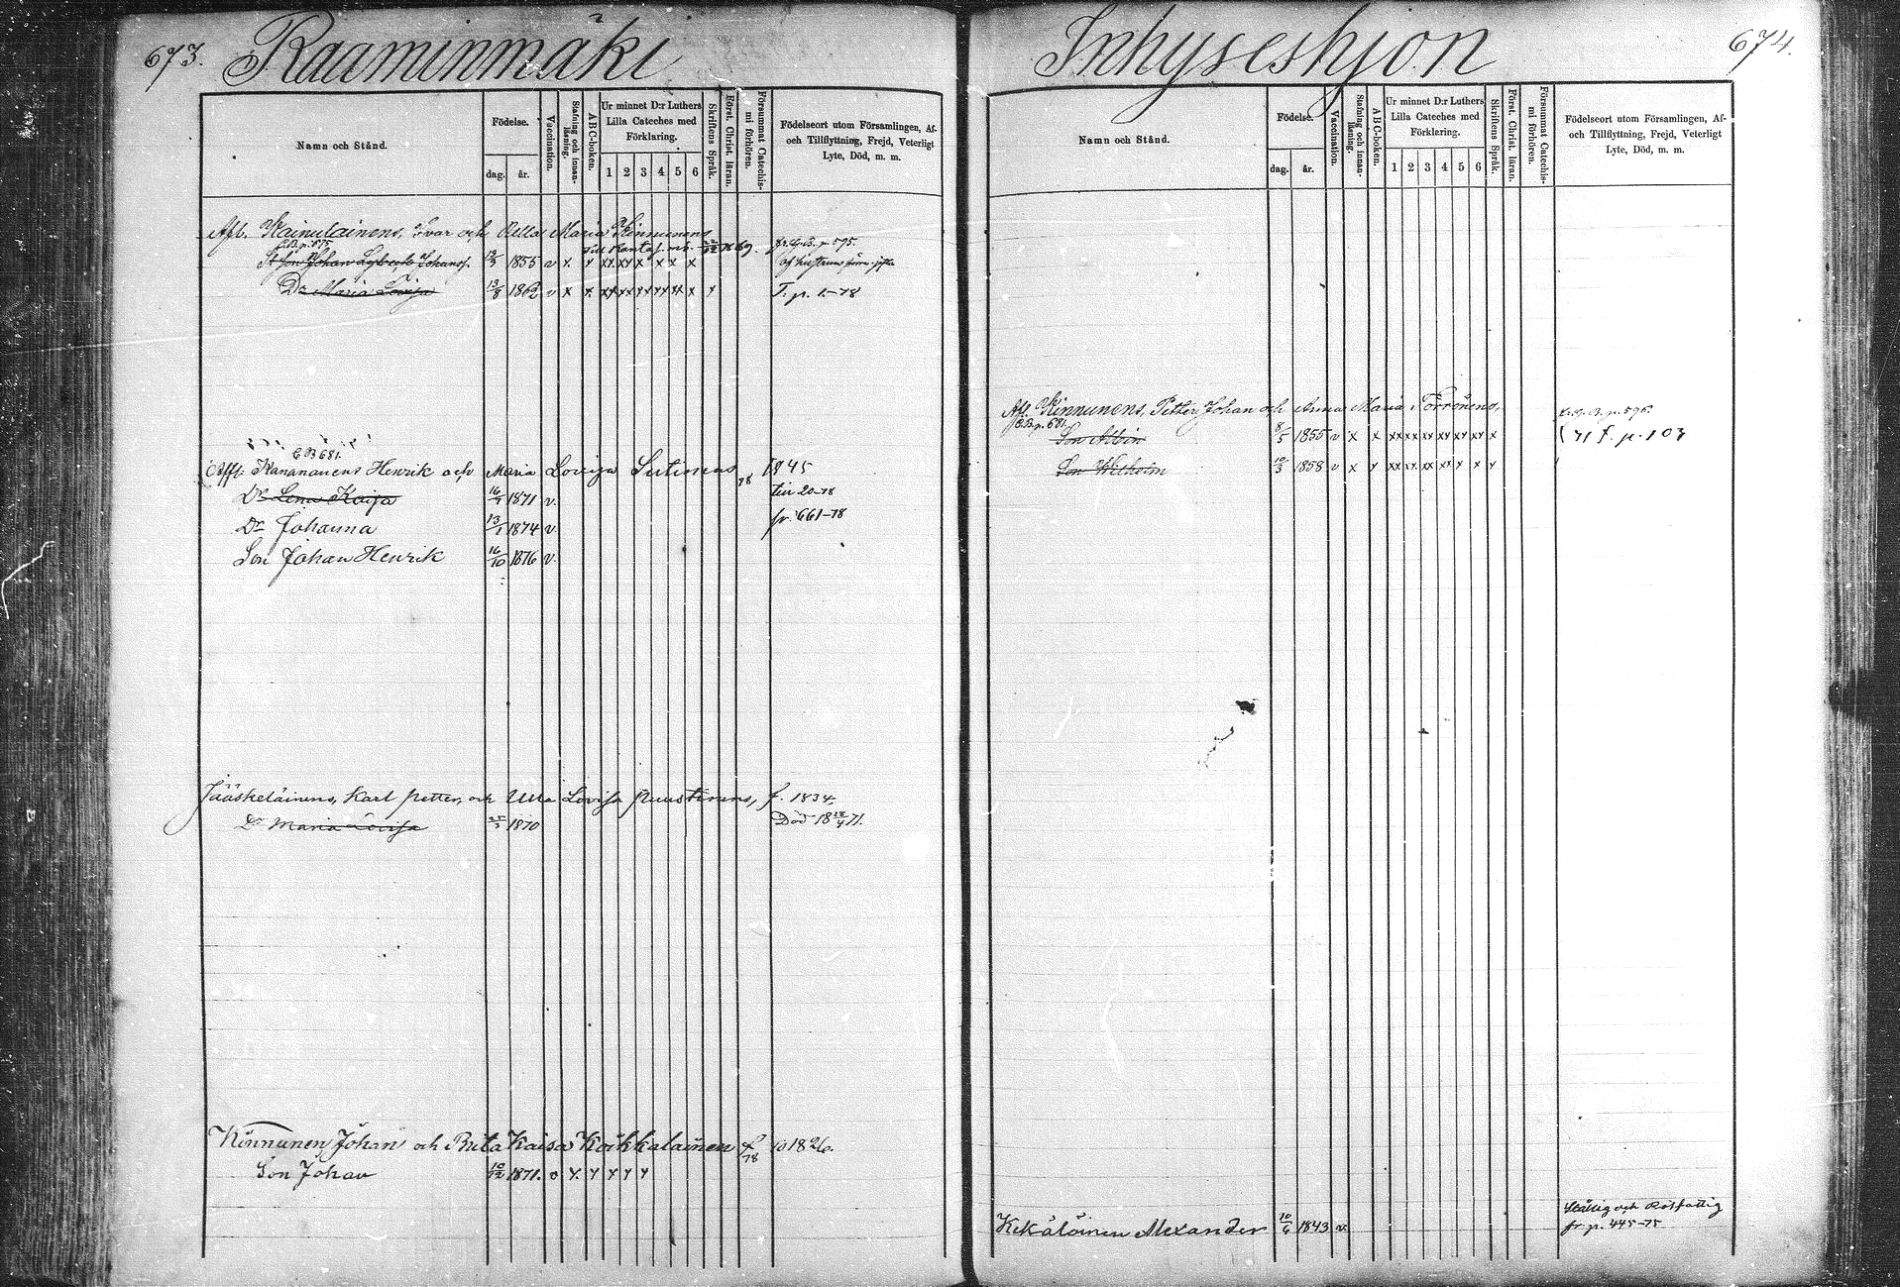 673. Raaminmäki
Namn och Stånd.
Födelse.
dag. år.
Vaccination.
Stafning och innan-läsning.
A B C-boken.
Ur minnet D:r Luthers
Lilla Cateches med
Förklaring.
1 2 3 4 5 6
Skriftens Språk.
Först. Christ. läran.
Försummat Catechis-mi förhören.
Födelseort utom Församlingen, Af-
och Tillflyttning, Frejd, Veterligt
Lyte, Död, m. m.
Afl. Kainulainens, Ivar och Maria Kinnunens
Johan Johanss. 1855 v x x xx xx x x x x
Dr Maria Lovisa 13/8 1862 v x x xx xx xx xx xx x x T. p. 1.-78
C B 681.
Kananauens Henrik och Maria Lovisa Sutinens 1845
Dr Lena Kaisa 1871 v. till 20-78
Dr Johanna 1874 v. fr. 661-78
Son Johan Henrik 16/10 1876 v.
Jääskeläinens, Karl Petter, och Ulla Lovisa Puustinens, f. 1834.
Dr Maria Lovisa 1870 Död 71.
Kinnunen, Johan och Brita Kaisa Koikkalainen 1826.
Son Johan 10/12 1871.
Inhyseshjon 674.
Namn och Stånd.
Födelse.
dag. år.
Vaccination.
Stafning och innan-läsning.
A B C-boken.
Ur minnet D:r Luthers
Lilla Cateches med
Förklaring.
1 2 3 4 5 6
Skriftens Språk.
Först. Christ. läran.
Försummat Catechis-mi förhören.
Födelseort utom Församlingen, Af-
och Tillflyttning, Frejd, Veterligt
Lyte, Död, m. m.
Afl. Kinnunens, Petter Johan och Anna Maria Törrönens,
C.B. p. 681.
Son Albin 8/5 1855 v x x xx xx xx xx xx xx x 71 T. p. 103
Son Wilhelm 1858 v x
Kekäläinen Alexander 10/6 1843 v. fr. p. 445-75